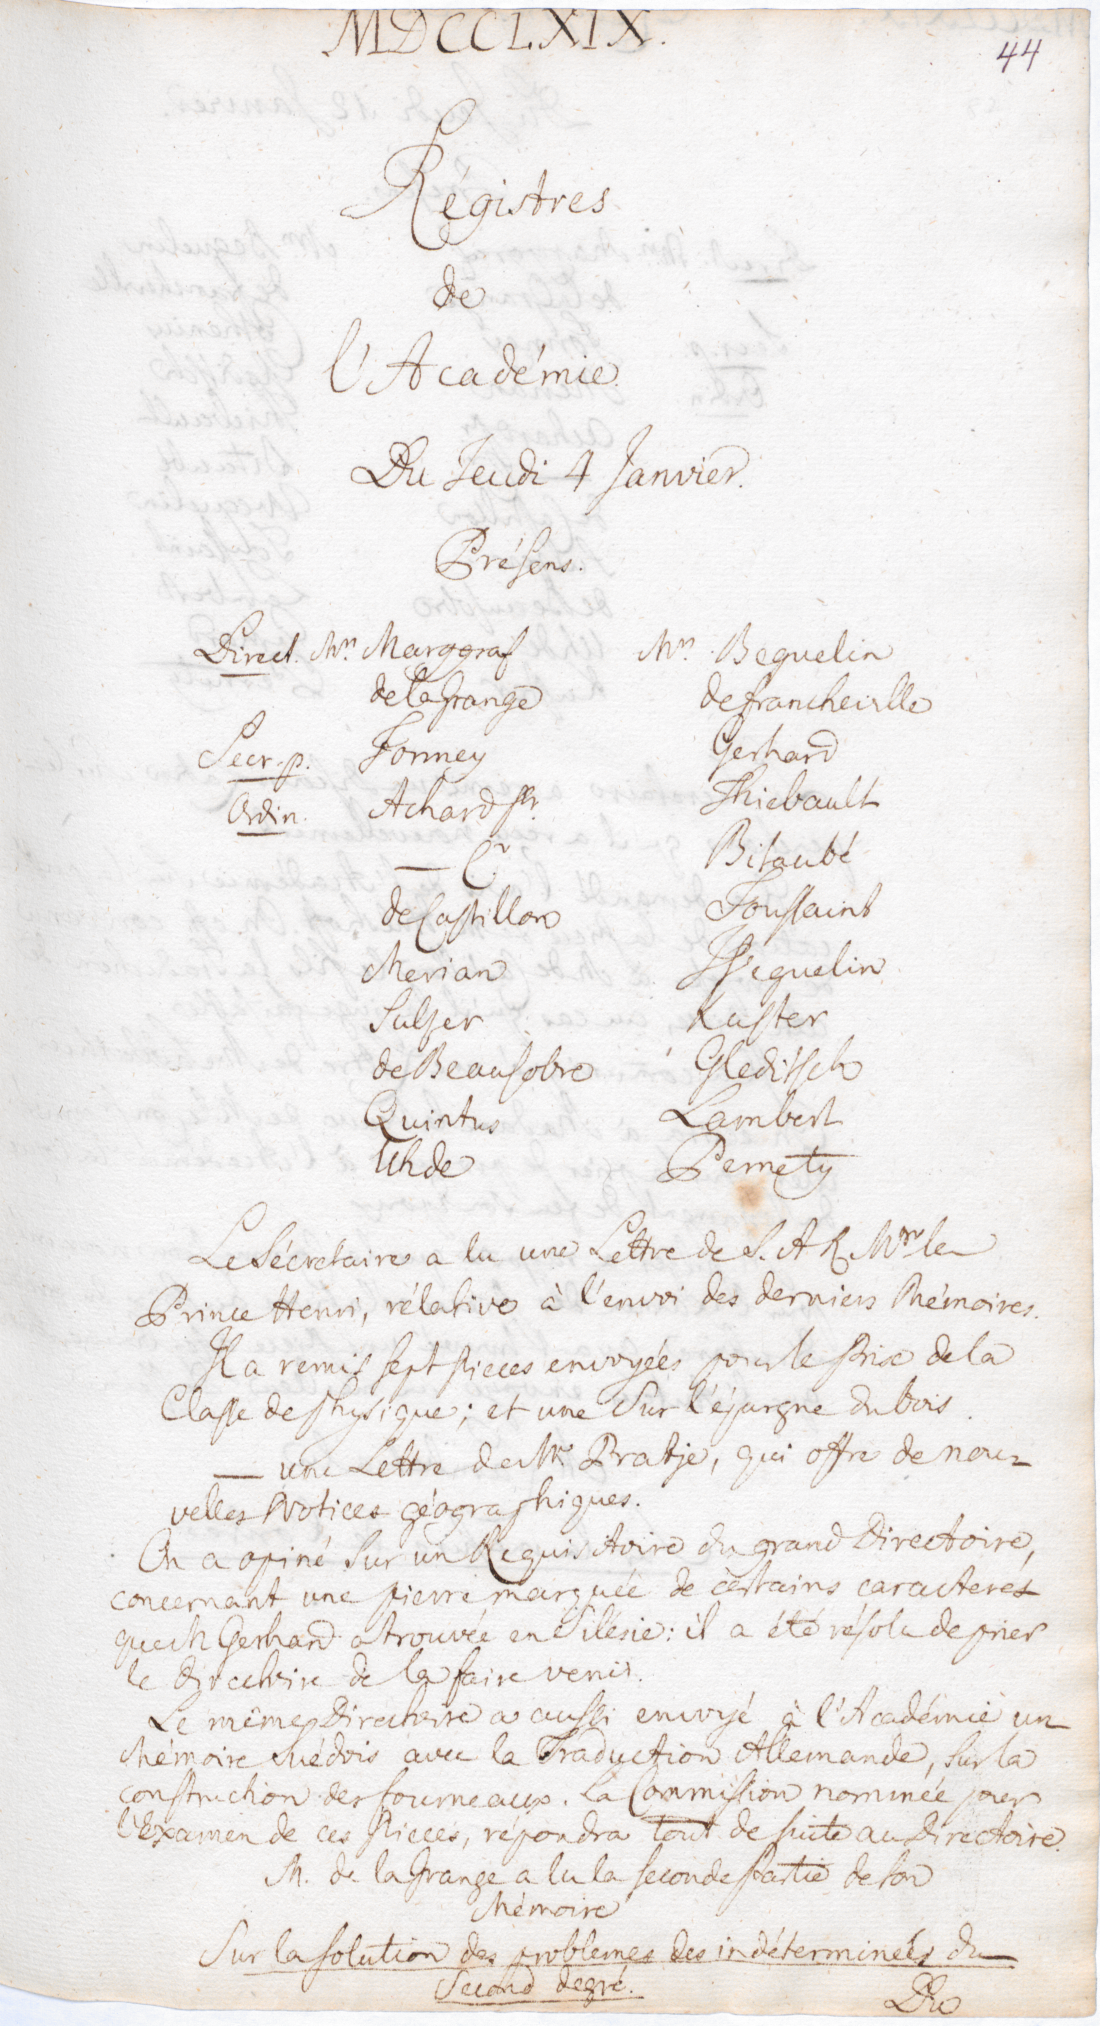 MDCCLXIX.
44
Régistres
de
l'Académie.
Du Jeudi 4 Janvier.
Présens.
Direct. Mrs. Marggraf
de la Grange
Secr. p. Formey
Ordin. Achard Sr.
— Cr
de Castillon
Merian
Sulzer
de Beausobre
Quintus
Uhde
Mrs. Beguelin
de Francheville
Gerhard
Thiebault
Bitaubé
Toussaint
Jseguelin
Kuster
Gleditsch
Lambert
Pernety
Le Sécretaire a lu une Lettre de S. A R. Mgr le
Prince Henri, rélative à l'envoi des derniers Mémoires.
Il a remis sept Pieces envoyées pour le Prix de la
Classe de Physique; et une Sur l'épargne du bois.
— une Lettre de Mr. Pratje, qui offre de nou-
velles Notices géographiques.
On a opiné sur un Requisitoire du grand Directoire,
concernant une pierre marquée de certains caracteres
que M Gerhard a trouvée en Silésie: il a été résolu de prier
le Directoire de la faire venir.
Le même Directoire a aussi envoyé à l'Académie un
Mémoire Suédois avec la Traduction Allemande, sur la
construction des fourneaux. La Commission nommée pour
l'Examen de ces Pieces, répondra tout de suite au Directoire.
M. de la Grange a lu la seconde Partie de son
Mémoire
Sur la solution des problemes des indéterminées du
Second degré.
Du